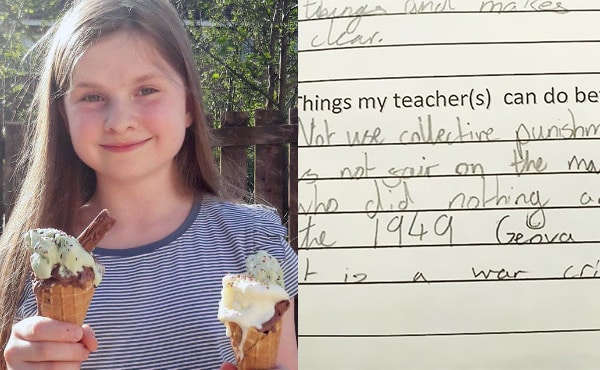 things and makes
clear.
Things my teacher(s) can do be
Not use collective punishm
s not fair on the ma
who did nothing a
the 1949 Genova
t is a war cri